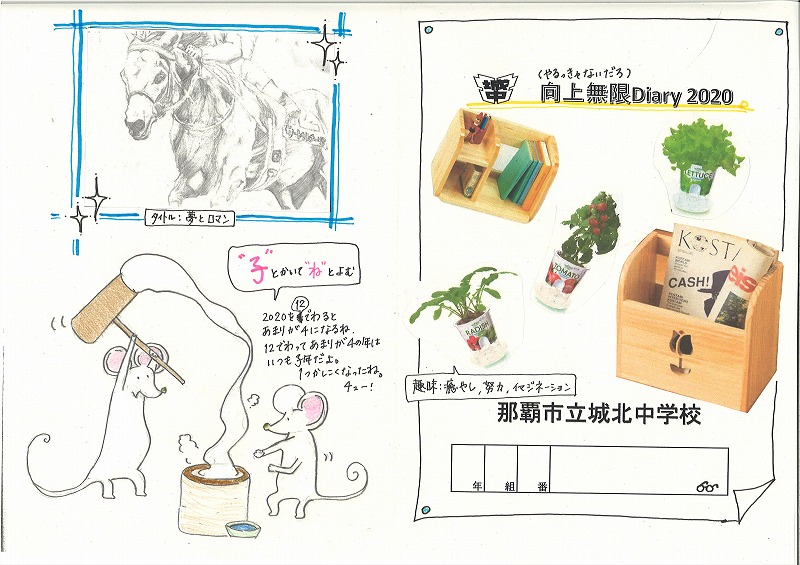 タイトル：夢とロマン
"子"とかいて"ね"とよむ
12
2020をでわると
あまりが4になるね.
12でわってあまりが4の年は
いつも子年だよ。
1つかしこくなったね。
チュー！
(やるっきゃないだろ)
向上無限Diary 2020
LETTUCE
TOMATO
RADISH
KOST/
CASH!
趣味：癒やし,努力,イマジネーション
那覇市立城北中学校
年 組 番